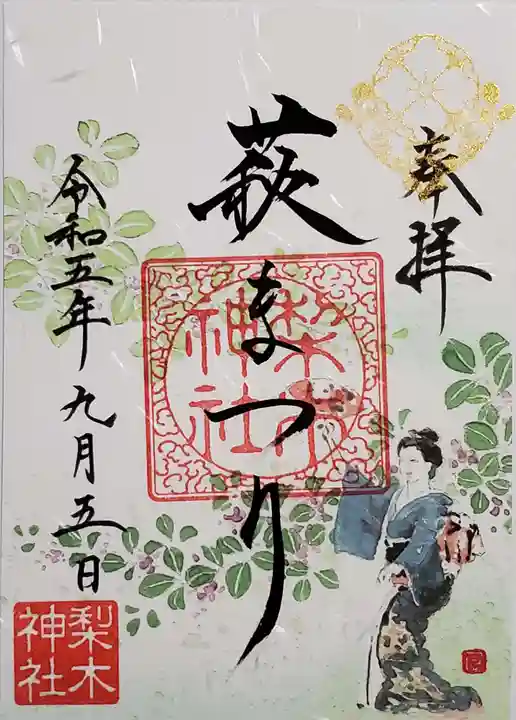 奉拝
萩まつり
梨木
神社
令和五年九月五日
梨木
神社